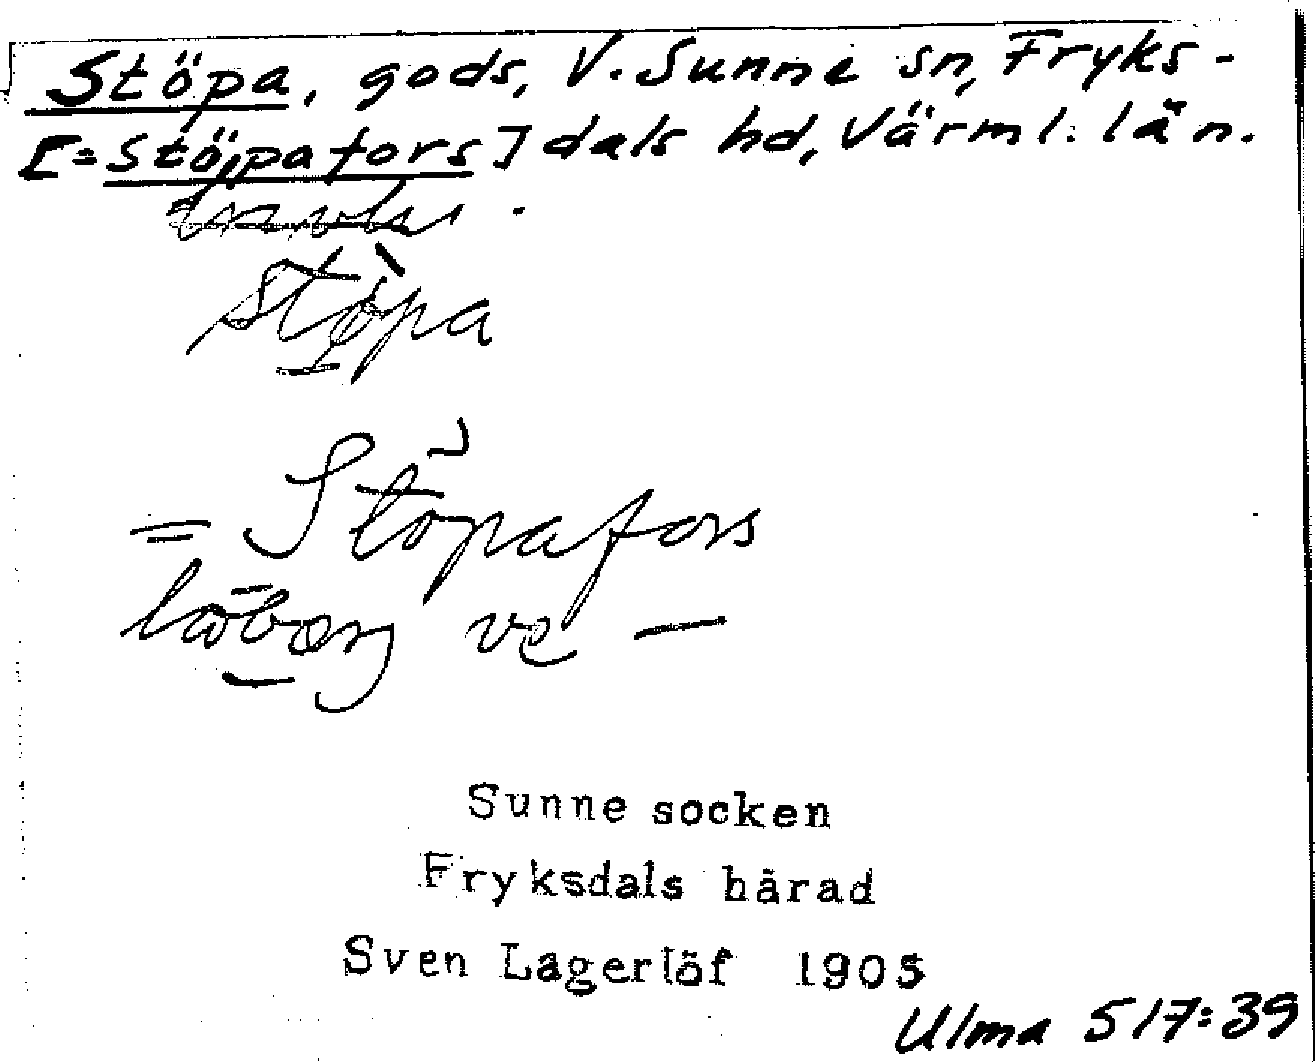 Stöpa, gods, V. Sunne sn, Fryks-
[=Stöpafors] dals hd, Värml. län.
stöpa
= Stöpafors
ve —
Sunne socken
Fryksdals härad
Sven Lagerlöf 1905
Ulma 517:39